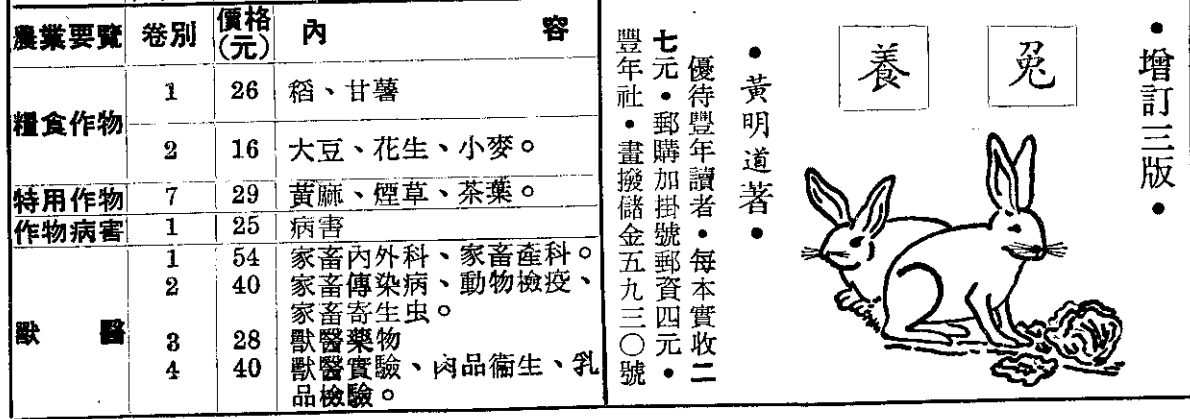 農業要覽 卷別 價格(元) 內 容
糧食作物 1 26 稻、甘薯
2 16 大豆、花生、小麥。
特用作物 7 29 黃麻、煙草、茶葉。
作物病害 1 25 病害
獸 醫 1 54 家畜內外科、家畜產科。
2 40 家畜傳染病、動物檢疫、
家畜寄生虫。
3 28 獸醫藥物
4 40 獸醫實驗、肉品衞生、乳
品檢驗。
•增訂三版•
兔
養
•黃明道著•
優待豐年讀者•每本實收二
七元•郵購加掛號郵資四元•
豐年社•畫撥儲金五九三〇號